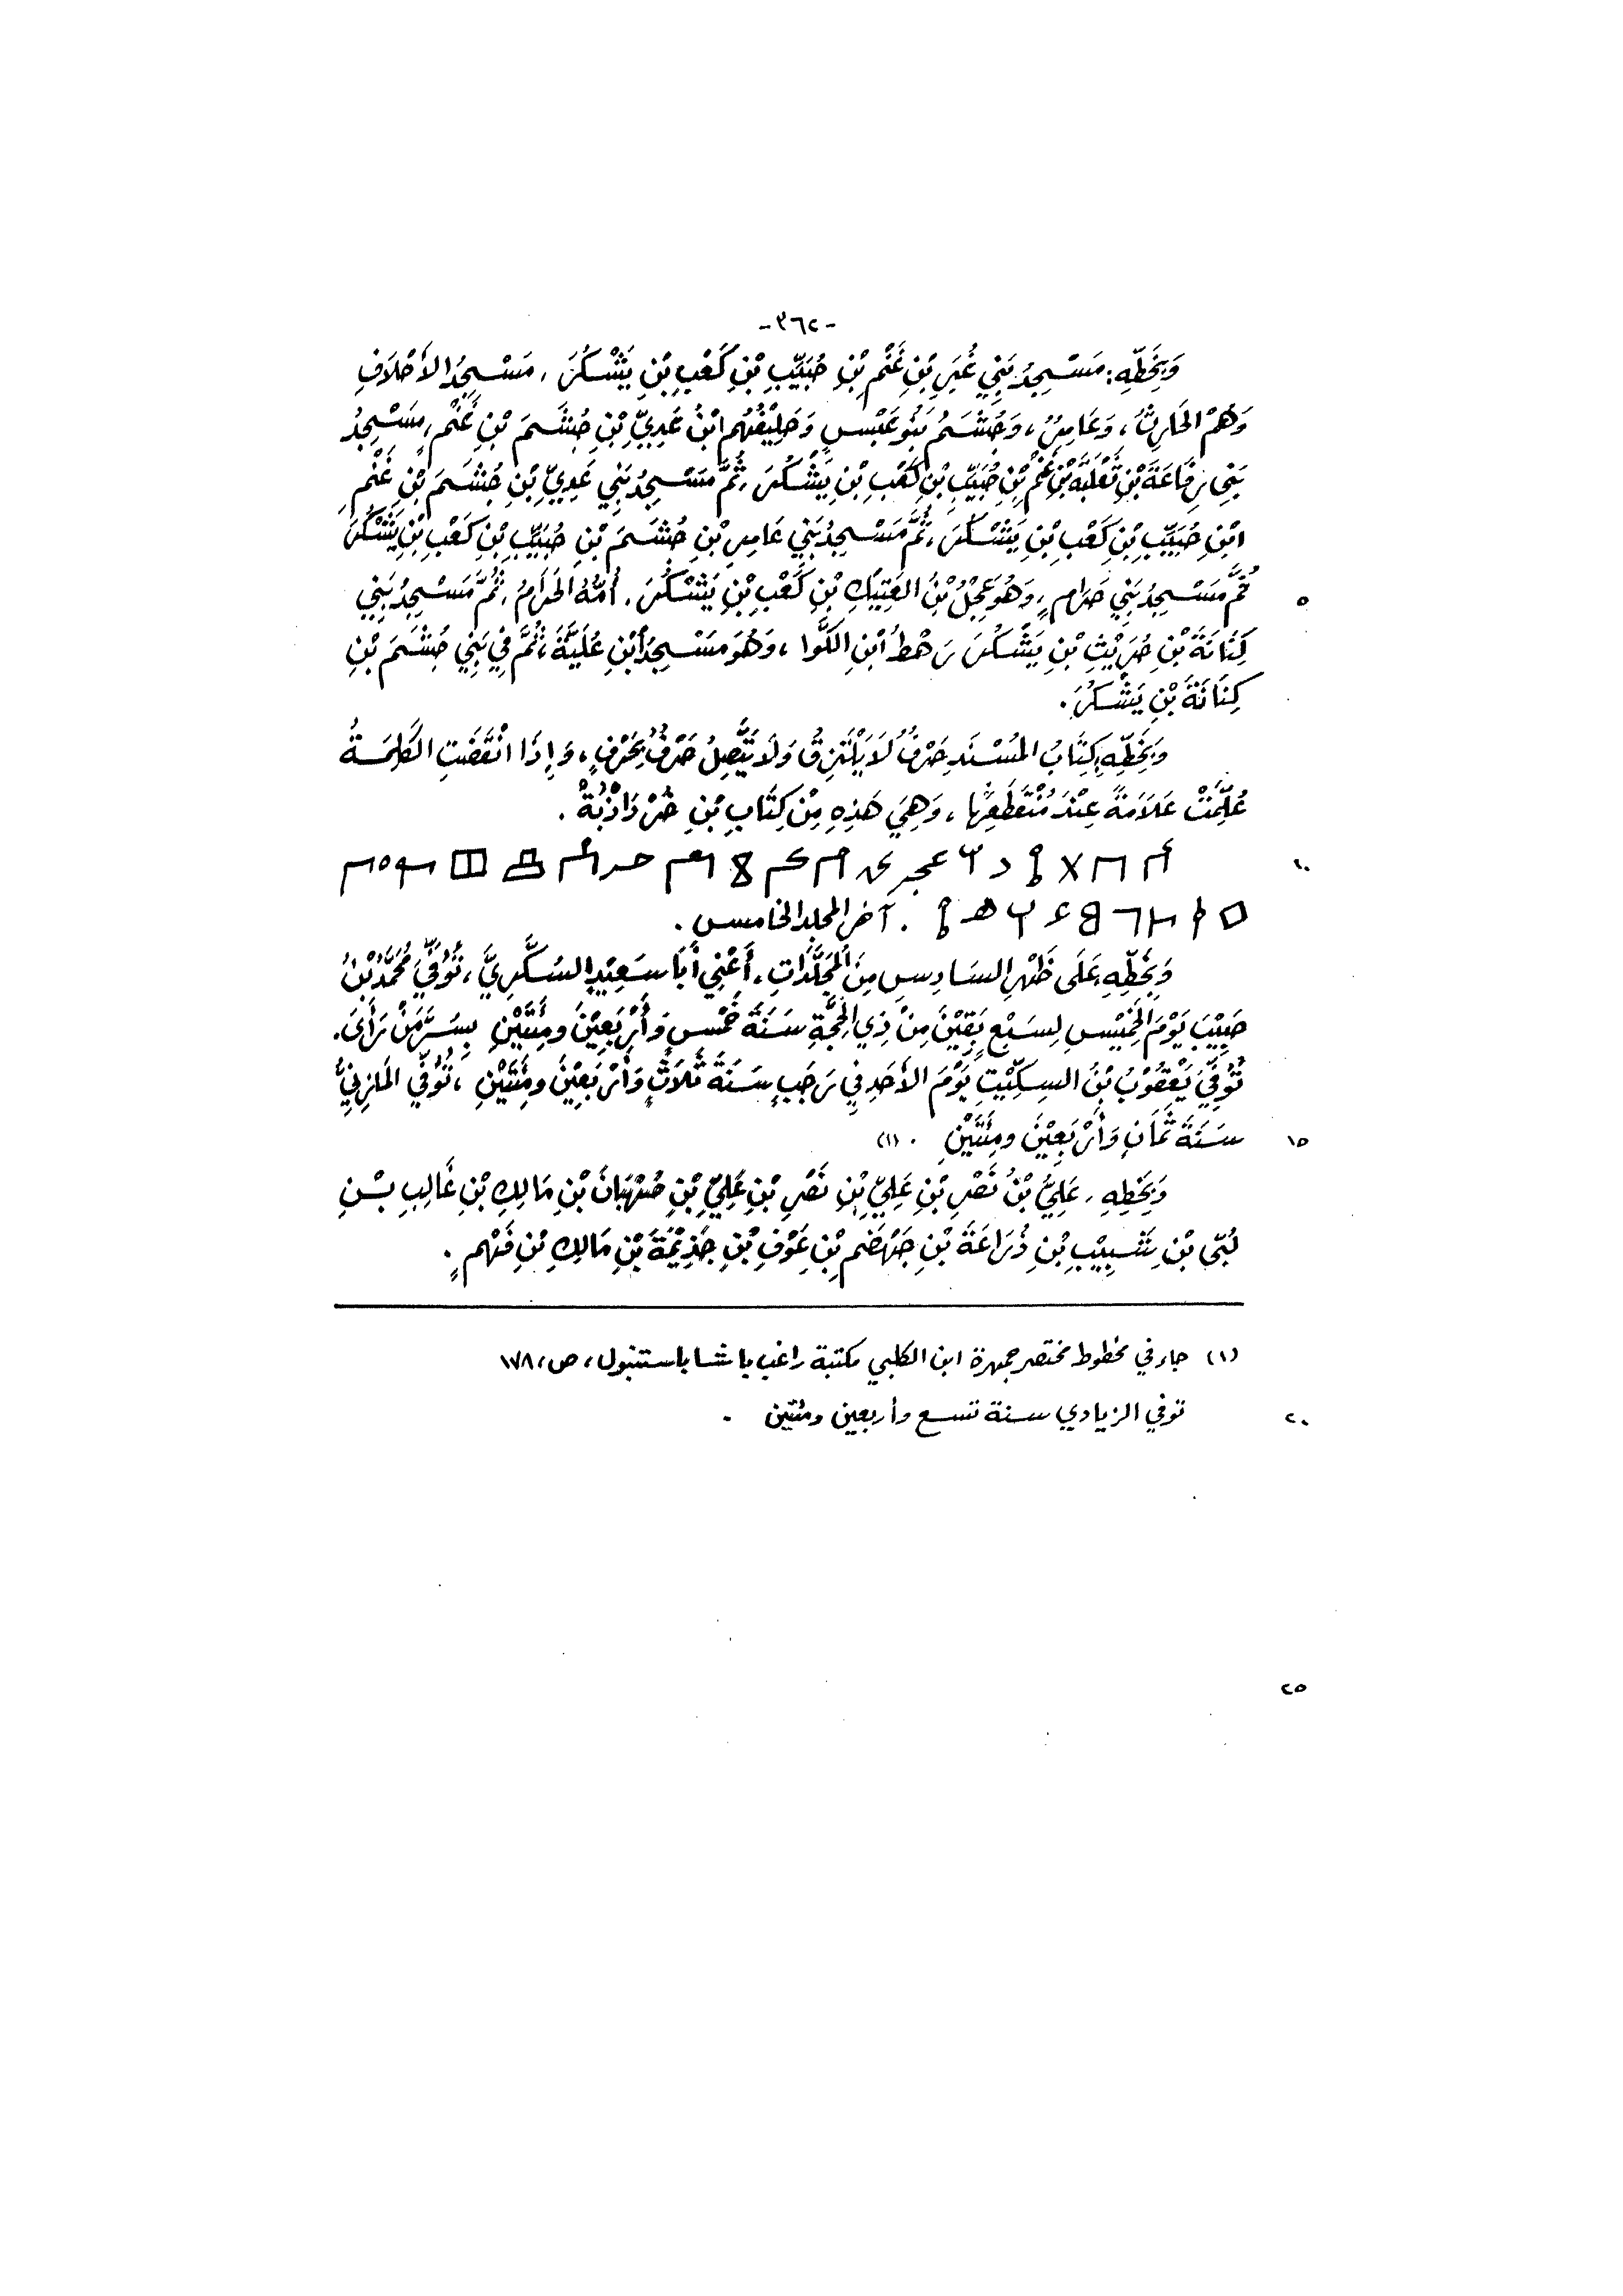 -٣٦٢-
وَبِخَطِّهِ: مَسْجِدُ بَنِي غُبَرِ بْنِ غَنْمِ بْنِ حُبَيِّبِ بْنِ كَعْبِ بْنِ يَشْكُرَ، مَسْجِدُ الأَحْلَافِ
وَهُمْ الحَارِثُ، وَعَامِرُ، وَجُشَمُ بَنُو عَبْسٍ وَحَلِيْفُهُم ابْنُ عَدِيِّ بْنِ جُشَمَ بْنِ غَنْمٍ، مَسْجِدُ
بَنِي رِفَاعَةَ بْنِ ثَعْلَبَةَ بْنِ غَنْمِ بْنِ حُبَيِّبِ بْنِ كَعْبِ بْنِ يَشْكُرَ، ثُمَّ مَسْجِدُ بَنِي عَدِيِّ بْنِ جُشَمَ بْنِ غَنْمِ
ابْنِ حُبَيِّبِ بْنِ كَعْبِ بْنِ يَشْكُرَ، ثُمَّ مَسْجِدُ بَنِي عَامِرِ بْنِ جُشَمَ بْنِ حُبَيِّبِ بْنِ كَعْبِ بْنِ يَشْكُرَ
ثُمَّ مَسْجِدُ بَنِي حَرَامٍ، وَهُوَ عِجْلُ بْنُ العَتِيكِ بْنِ كَعْبِ بْنِ يَشْكُرَ، أُمُّهُ الحَرَامُ، ثُمَّ مَسْجِدُ بَنِي ٥
كِنَانَةَ بْنِ حُرَيْثِ بْنِ يَشْكُرَ رَهْطُ ابْنِ الكَوَّا، وَهُوَ مَسْجِدُ ابْنِ عُلَيَّةَ، ثُمَّ فِي بَنِي جُشَمَ بْنِ
كِنَانَةَ بْنِ يَشْكُرَ.
وَبِخَطِّهِ، كِتَابُ المُسْنَدِ حَرْفُ لَا يَلْتَزِقُ وَلَا يَتَّصِلُ حَرْفٌ بِحَرْفٍ، وَإِذَا انْقَضَتِ الكَلِمَةُ
عُلِّمَتْ عَلَامَةً عِنْدَ مُنْقَطَعِهَا، وَهِيَ هَذِهِ مِنْ كِتَابِ بْنِ خُرْدَاذْبَةْ.
١٠
. آخر المجلد الخامس.
وَبِخَطِّهِ عَلَى ظَهْرِ السَادِسِ مِنَ المُجَلَّدَاتِ، أَعْنِي أَبَا سَعِيْدٍ السُكَّرِيَّ، تُوُفِّيَ مُحَمَّدُ بْنُ
حَبِيْبَ يَوْمَ الخَمِيْسِ لِسَبْعٍ بَقِيْنَ مِنْ ذِي الحِجَّةِ سَنَةَ خَمْسٍ وَأَرْبَعِيْنَ ومِئَتَيْنِ بِسُرَّ مَنْ رَأَىَ.
تُوُفِّيَ يَعْقُوْبُ بْنُ السِكِّيْتِ يَوْمَ الأَحَدِ فِي رَجَبٍ سَنَةَ ثَلَاثٍ وَأَرْبَعِيْنَ ومِئَتَيْنِ، تُوُفِّيَ المَازِنِيُّ
سَنَةَ ثَمَانٍ وَأَرْبَعِيْنَ ومِئَتَيْنِ. (١) ١٥
وَبِخَطِهِ، عَلِيُّ بْنُ نَصْرِ بْنِ عَلِيِّ بْنِ نَصْرِ بْنِ عَلِيِّ بْنِ صُهْبَانَ بْنِ مَالِكِ بْنِ غَالِبِ بْنِ
لُبَّى بْنِ شَبِيْبِ بْنِ دُرَاعَةَ بْنِ جَهْضَمِ بْنِ عَوْفِ بْنِ جَذِيْمَةَ بْنِ مَالِكِ بْنِ فَهْمٍ.
(١) جاء في مخطوط مختصر جمهرة ابن الكلبي مكتبة راغب باشا باستنبول، ص، ١٧٨
توفي الزيادي سنة تسع وأربعين ومئتين. ٢٠
٢٥